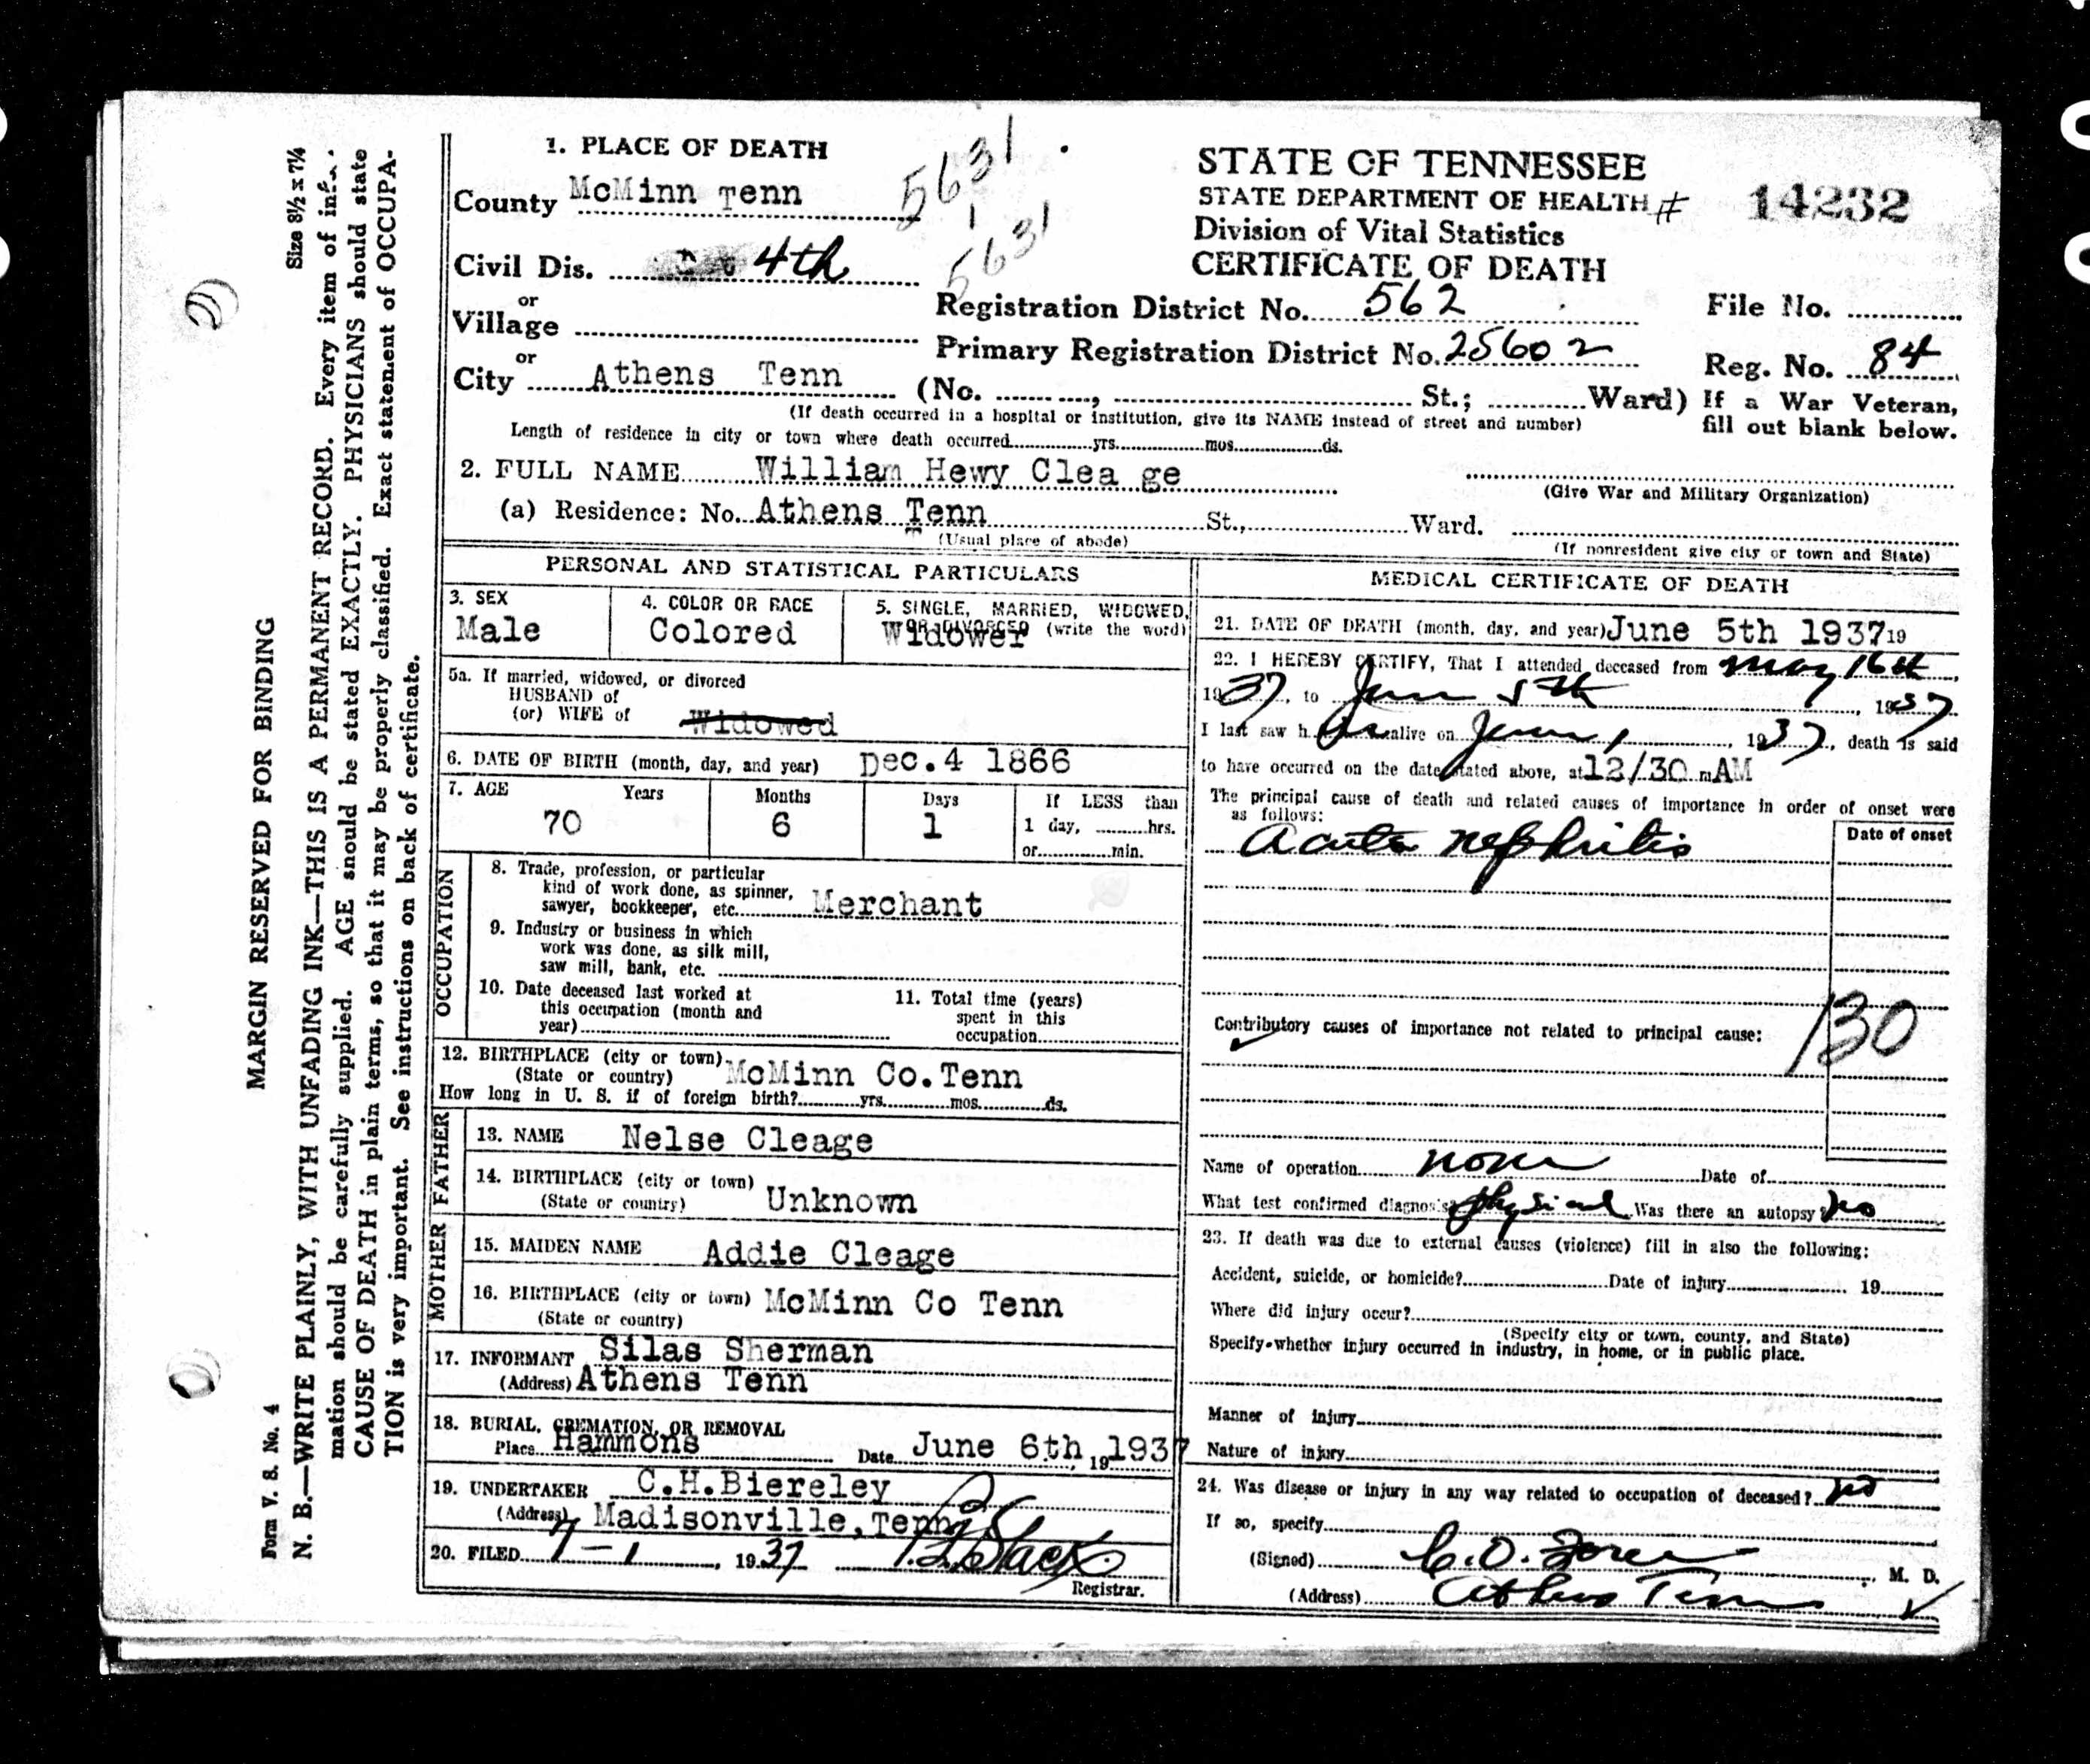 MARGIN RESERVED FOR BINDING
Size 8½ x 7¼
N. B.—WRITE PLAINLY, WITH UNFADING INK—THIS IS A PERMANENT RECORD. Every item of infor-
mation should be carefully supplied. AGE should be stated EXACTLY. PHYSICIANS should state
CAUSE OF DEATH in plain terms, so that it may be properly classified. Exact statement of OCCUPA-
TION is very important. See instructions on back of certificate.
Form V. S. No. 4
1. PLACE OF DEATH
County McMinn Tenn
5631
1
5631
Civil Dis. 4th
or
Village
or
City Athens Tenn (No. , St.; Ward)
(If death occurred in a hospital or institution, give its NAME instead of street and number)
STATE OF TENNESSEE
STATE DEPARTMENT OF HEALTH # 14232
Division of Vital Statistics
CERTIFICATE OF DEATH
Registration District No. 562
Primary Registration District No. 25602
File No.
Reg. No. 84
If a War Veteran,
fill out blank below.
Length of residence in city or town where death occurred yrs. mos. ds.
2. FULL NAME William Hewy Clea ge
(Give War and Military Organization)
(a) Residence: No. Athens Tenn St., Ward.
(Usual place of abode)
(If nonresident give city or town and State)
PERSONAL AND STATISTICAL PARTICULARS
3. SEX
Male
4. COLOR OR RACE
Colored
5. SINGLE, MARRIED, WIDOWED,
OR DIVORCED (write the word)
Widower
5a. If married, widowed, or divorced
HUSBAND of
(or) WIFE of Widowed
6. DATE OF BIRTH (month, day, and year) Dec.4 1866
7. AGE Years Months Days If LESS than
70 6 1 1 day, hrs.
or min.
OCCUPATION
8. Trade, profession, or particular
kind of work done, as spinner,
sawyer, bookkeeper, etc. Merchant
9. Industry or business in which
work was done, as silk mill,
saw mill, bank, etc.
10. Date deceased last worked at
this occupation (month and
year)
11. Total time (years)
spent in this
occupation
12. BIRTHPLACE (city or town)
(State or country) McMinn Co.Tenn
How long in U. S. if of foreign birth? yrs. mos. ds.
FATHER
13. NAME Nelse Cleage
14. BIRTHPLACE (city or town)
(State or country) Unknown
MOTHER
15. MAIDEN NAME Addie Cleage
16. BIRTHPLACE (city or town) McMinn Co Tenn
(State or country)
17. INFORMANT Silas Sherman
(Address) Athens Tenn
18. BURIAL, CREMATION, OR REMOVAL
Place Hammons Date June 6th, 19 1937
19. UNDERTAKER C.H.Biereley
(Address) Madisonville, Tenn
20. FILED 7-1, 1937
Registrar.
MEDICAL CERTIFICATE OF DEATH
21. DATE OF DEATH (month, day, and year) June 5th 1937 19
22. I HEREBY CERTIFY, That I attended deceased from May 16th,
1937, to June 5th, 1937
I last saw h alive on June 1, 1937, death is said
to have occurred on the date stated above, at 12/30 m.AM
The principal cause of death and related causes of importance in order of onset were
as follows:
Date of onset
Acute nephritis
130
Contributory causes of importance not related to principal cause:
Name of operation none Date of
What test confirmed diagnosis? Physical Was there an autopsy? No
23. If death was due to external causes (violence) fill in also the following:
Accident, suicide, or homicide? Date of injury 19
Where did injury occur?
(Specify city or town, county, and State)
Specify whether injury occurred in industry, in home, or in public place.
Manner of injury
Nature of injury
24. Was disease or injury in any way related to occupation of deceased? no
If so, specify
(Signed) M. D.
(Address) Athens Tenn